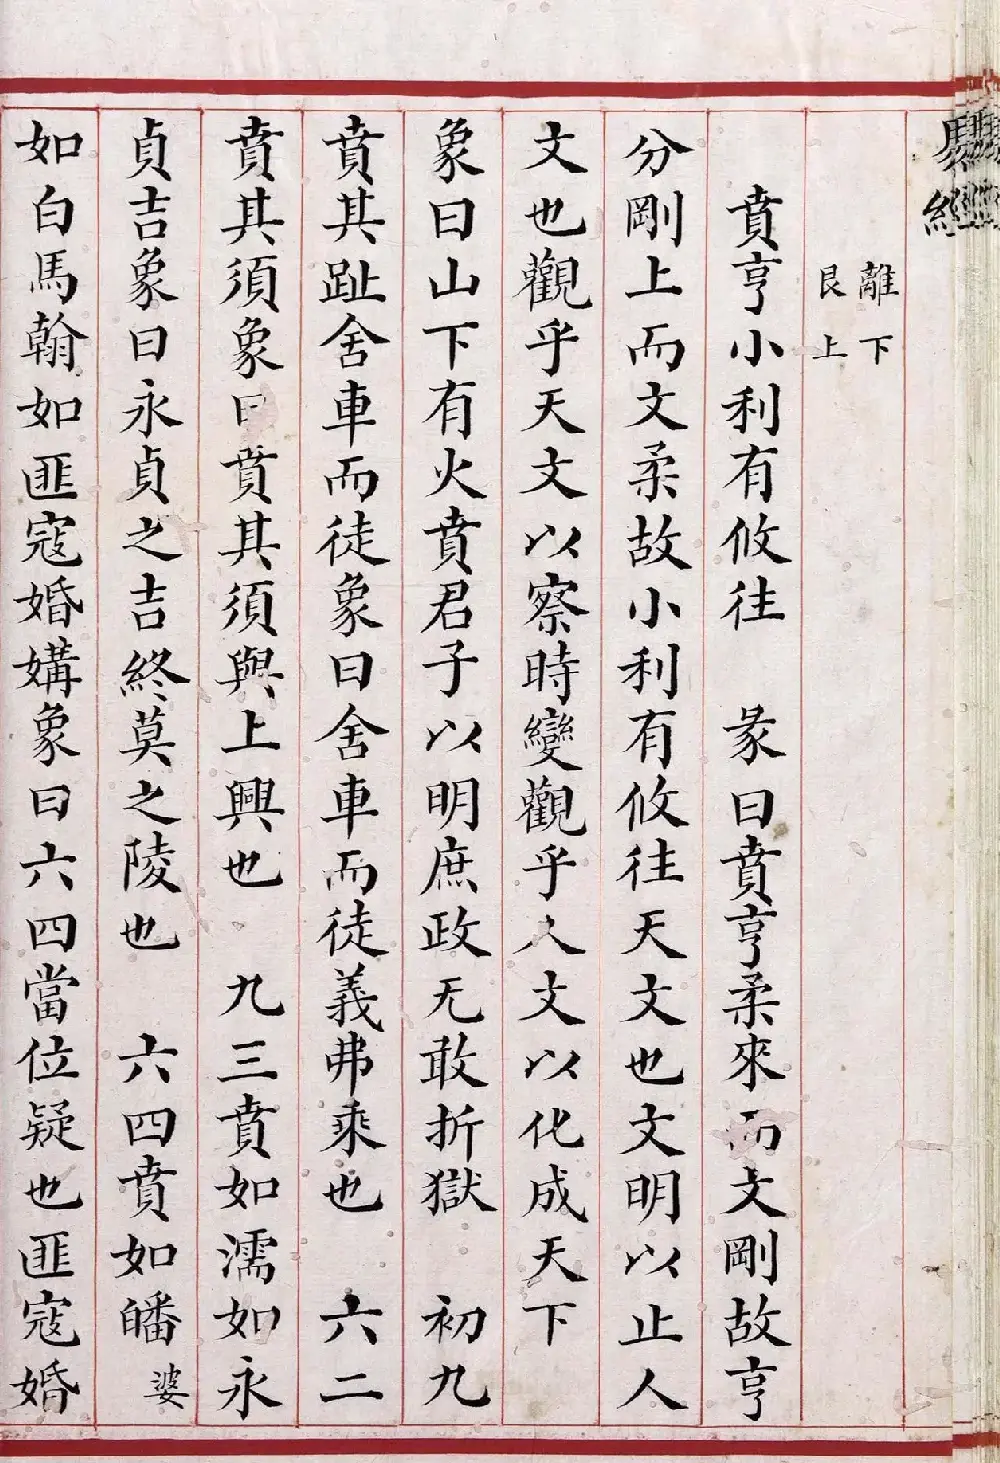 離下
艮上
賁亨小利有攸往　彖曰賁亨柔來而文剛故亨
分剛上而文柔故小利有攸往天文也文明以止人
文也觀乎天文以察時變觀乎人文以化成天下
象曰山下有火賁君子以明庶政无敢折獄　初九
賁其趾舍車而徒象曰舍車而徒義弗乘也　六二
賁其須象曰賁其須與上興也　九三賁如濡如永
貞吉象曰永貞之吉終莫之陵也　六四賁如皤婆
如白馬翰如匪寇婚媾象曰六四當位疑也匪寇婚